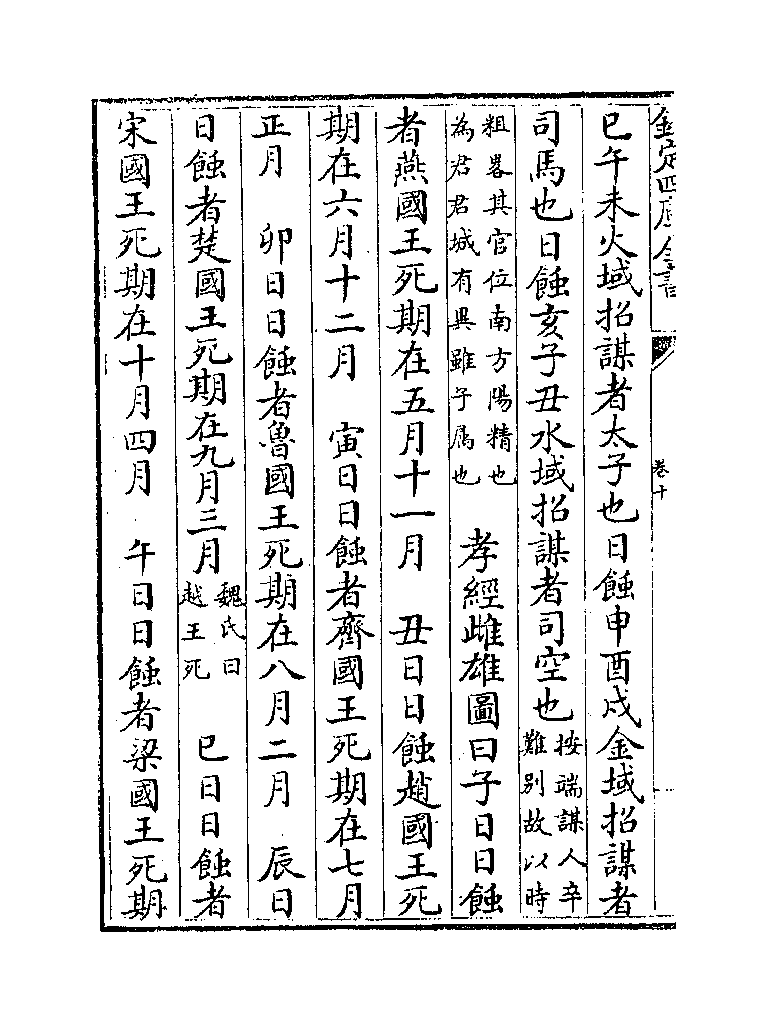 欽定四庫全書
卷十
巳午未火域招謀者太子也日蝕申酉戌金域招謀者
司馬也日蝕亥子丑水域招謀者司空也按端謀人辛難别故以時
粗畧其官位南方陽精也為君君城有異雖子属也 孝經雌雄圖曰子日日蝕
者燕國王死期在五月十一月 丑日日蝕趙國王死
期在六月十二月 寅日日蝕者齊國王死期在七月
正月 卯日日蝕者魯國王死期在八月二月 辰日
日蝕者楚國王死期在九月三月魏氏曰越王死 巳日日蝕者
宋國王死期在十月四月 午日日蝕者梁國王死期